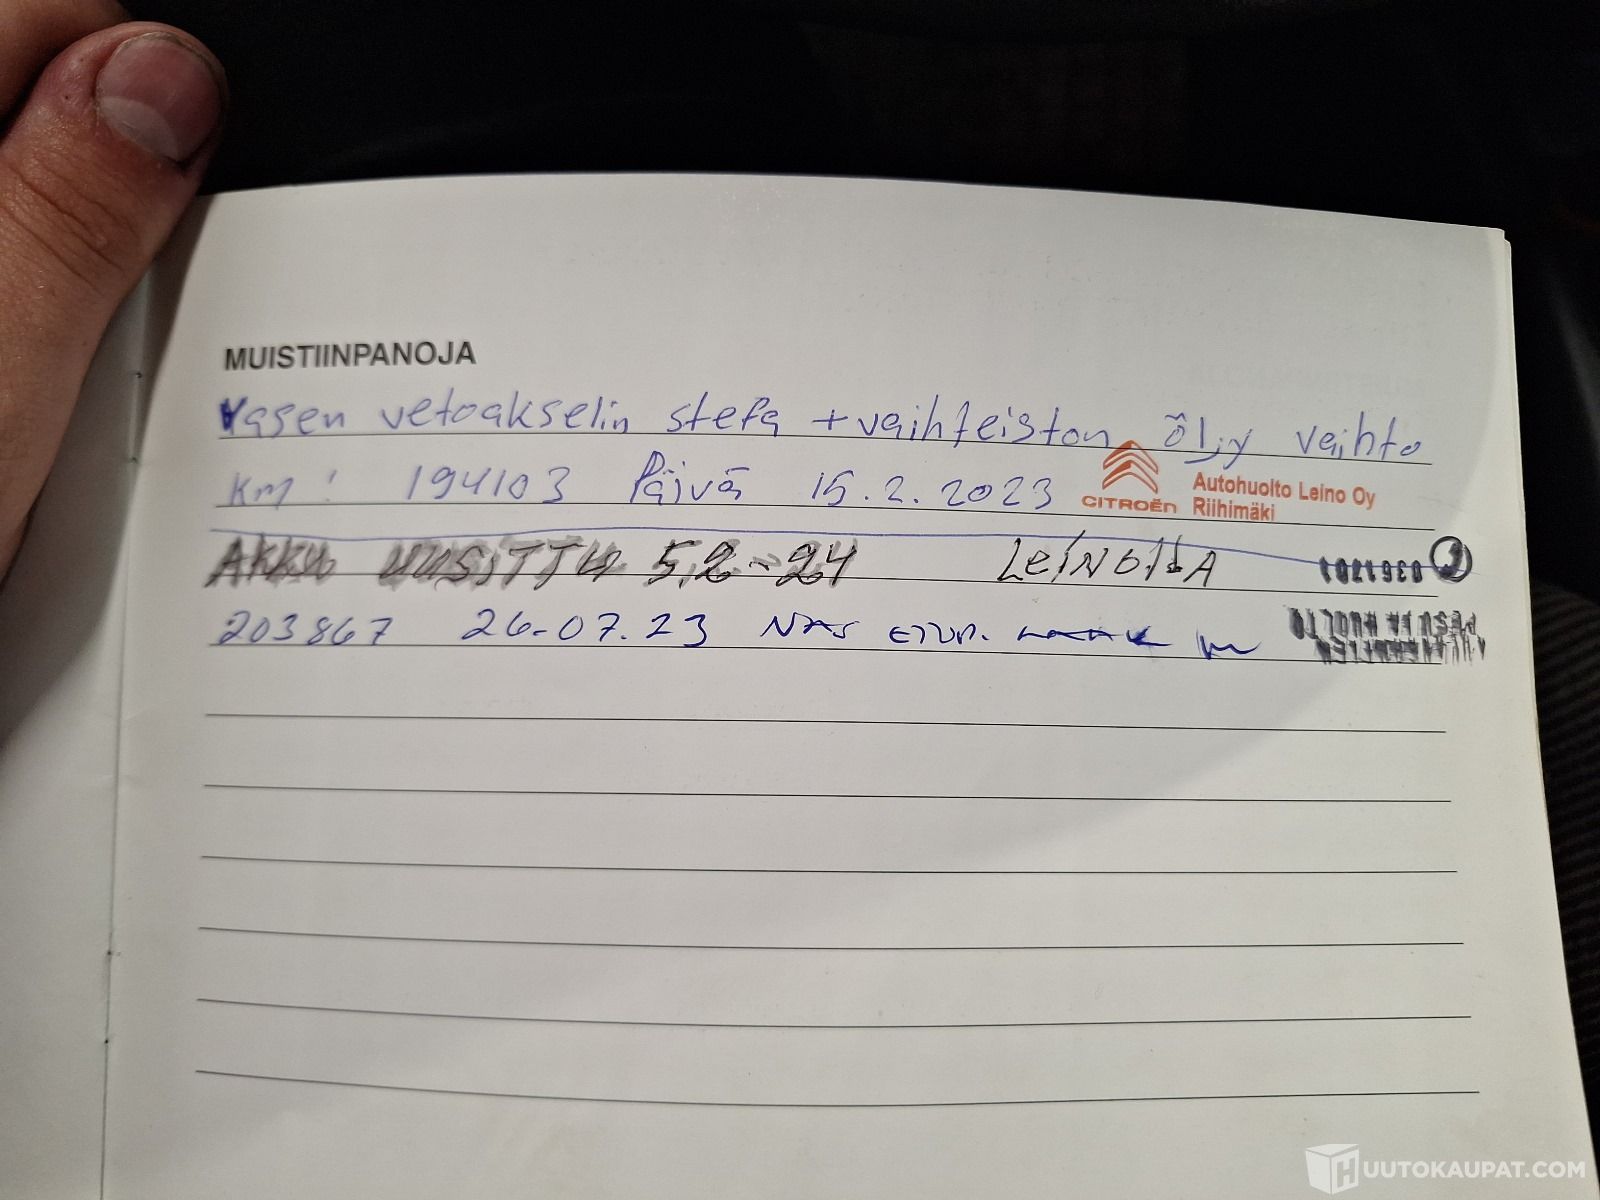 MUISTIINPANOJA
Vasen vetoakselin stefa + vaihteiston öljy vaihto
km: 194103 Päivä 15.2.2023
CITROËN
Autohuolto Leino Oy
Riihimäki
AKKU UUSITTU 5.2-24 LeINOLLA
203867 26-07.23
HUUTOKAUPAT.COM